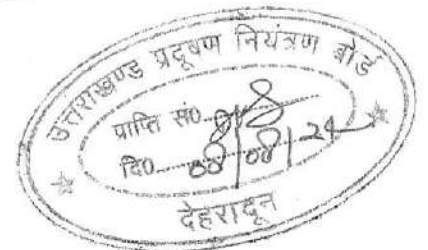 उत्तराखण्ड प्रदूषण नियंत्रण बोर्ड
प्राप्ति सं0
दि0 08/08/24
देहरादून